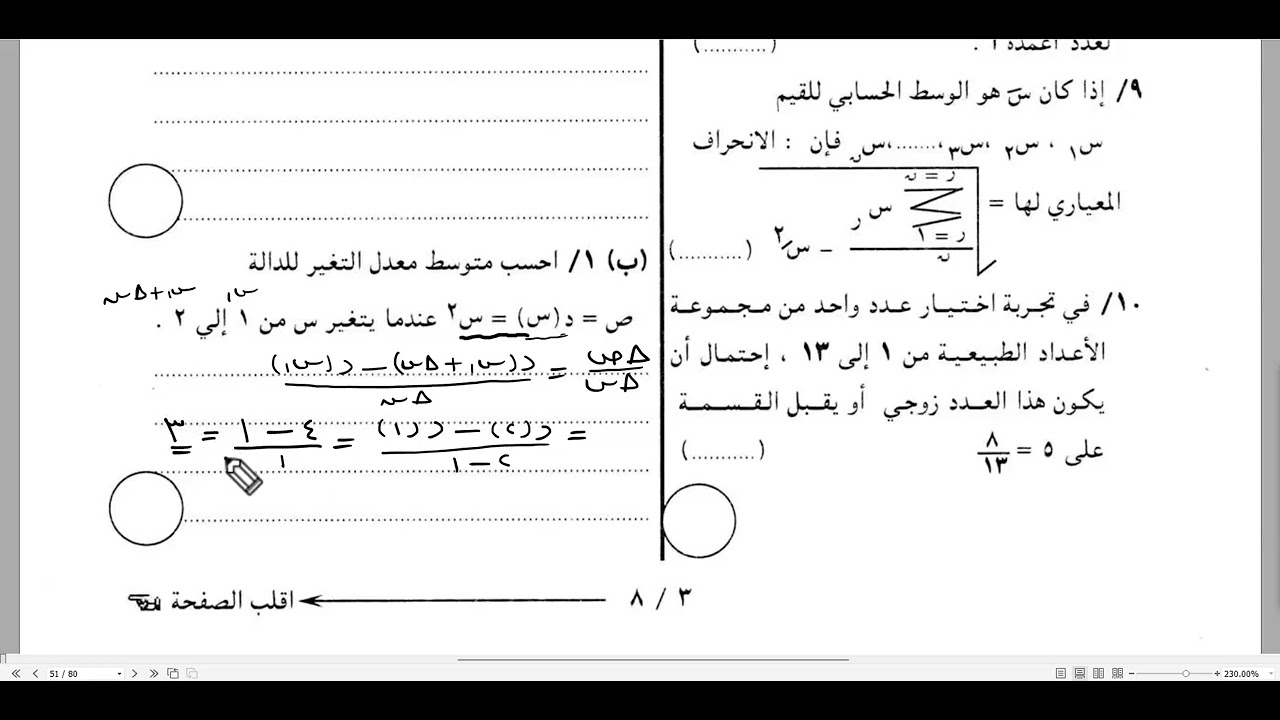 لعدد أعمدة أ . (...........)
٩/ إذا كان سَ هو الوسط الحسابي للقيم
س١ ، س٢ ،س٣ ،.......،سن فإن : الانحراف
المعياري لها = √ ن=ر Σ ر=١ س ر / ن – سَ/٢ (...........)
١٠/ في تجربة اختيار عدد واحد من مجموعة
الأعداد الطبيعية من ١ إلى ١٣ ، إحتمال أن
يكون هذا العدد زوجي أو يقبل القسمة
على ٥ = ٨/١٣ (...........)
(ب) ١/ احسب متوسط معدل التغير للدالة
س١ س١+Δس
ص = د(س) = س٢ عندما يتغير س من ١ إلي ٢ .
Δص/Δس = د(س١+Δس) – د(س١) / Δس
= د(٢) – د(١) / ٢–١ = ٤ – ١ / ١ = ٣
٣ / ٨
اقلب الصفحة
51 / 80
230.00%